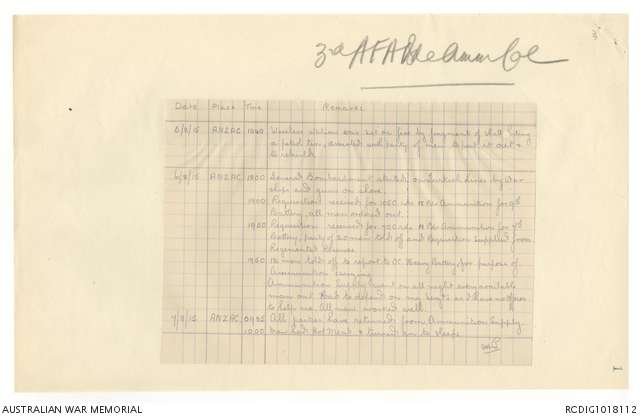 3
3rd AFA Bde Amm Col
Date Place Time Remarks
5/8/15 ANZAC 1040 Wireless station was set on fire by fragment of shell hitting
a petrol tin, assisted with party of men to put it out &
to rebuild
6/8/15 ANZAC 1800 General Bombardment started on Turkish lines by War
ships and guns on shore.
1900 Requisition received for 1050 rds 18 Pdr Ammunition for 9th
Battery, all men ordered out.
1900 Requisition received for 700 rds 18 Pdr Ammunition for 7th
Battery, party of 20 men told off and Requisition Supplied from
Regimental Reserve.
1930 12 men told off to report to OC Heavy Battery, for purpose of
Ammunition carrying
Ammunition Supply went on all night every available
man out. Had to depend on my Sergts as I have no officer
to help me. All men worked well.
7/8/15 ANZAC All parties have returned from Ammunition Supply
1000 Men had Hot Meal & turned in to sleep.
AUSTRALIAN WAR MEMORIAL
RCDIG1018112